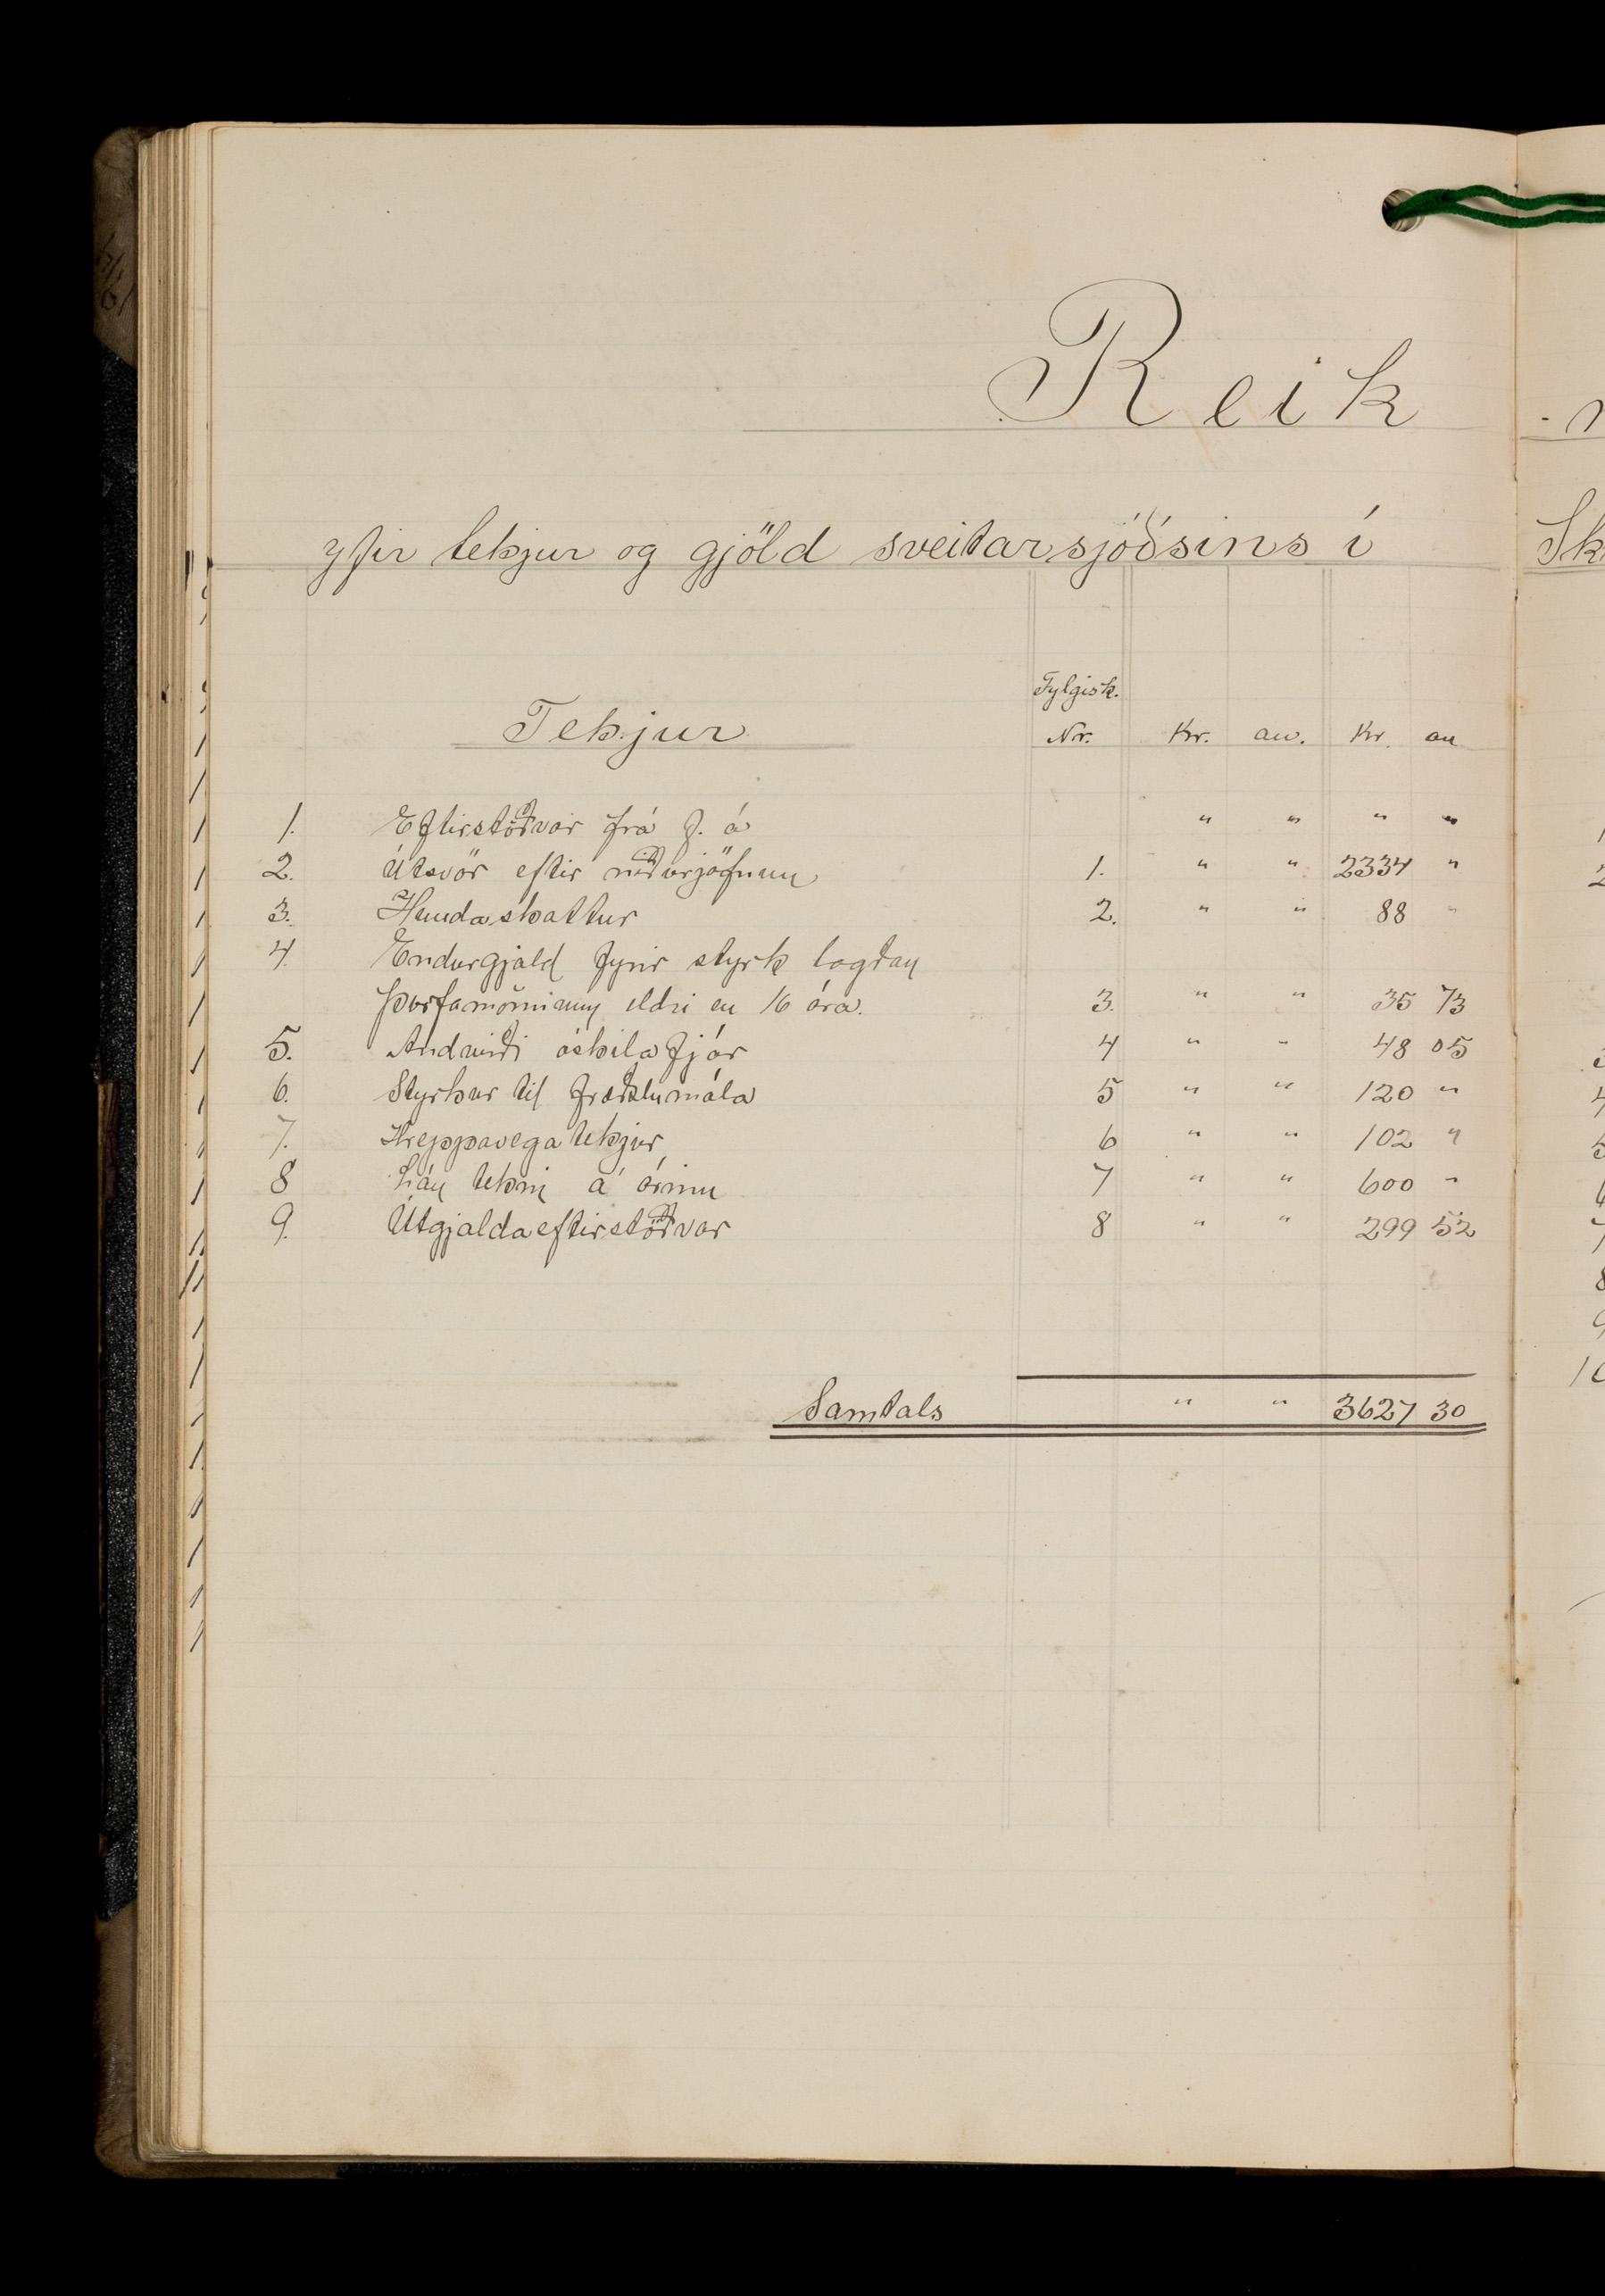 Reik
yfir tekjur og gjöld sveitarsjóðsins í
Sk
Fylgisk.
Tekjur Nr. Kr. au. Kr. au
1. Eftirstöðvar frá f. á " " " "
2. Útsvör eftir niðurjöfnun 1. " " 2334 "
3. Hundaskattur 2. " " 88 "
4. Endurgjald fyrir styrk lagðan
þurfamönnum eldri en 16 ára. 3. " " 35 73
5. Andvirði óskilafjár 4 " " 48 05
6. Styrkur til fræðslumála 5 " " 120 "
7. Hreppavega tekjur 6 " " 102 "
8 Lán tekin á árinu 7 " " 600 "
9. Útgjaldaeftirstöðvar 8 " " 299 52
Samtals " " 3627 30